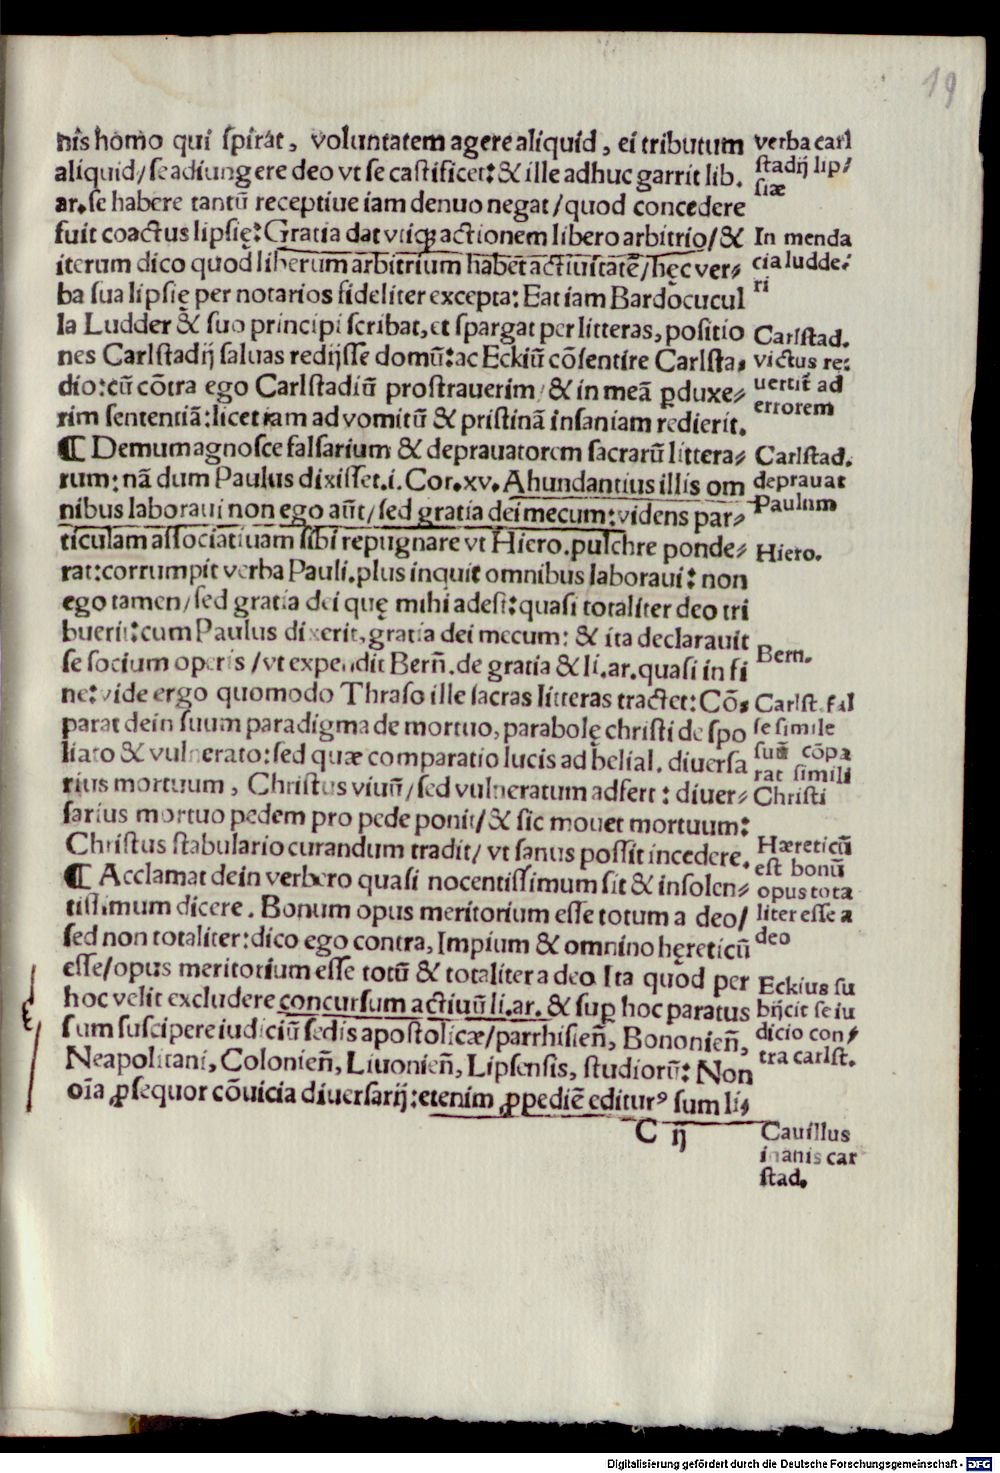 19
nis homo qui spirat, voluntatem agere aliquid, ei tributum
aliquid/ se adiungere deo vt se castificet: & ille adhuc garrit lib.
ar. se habere tantū receptiue iam denuo negat/ quod concedere
fuit coactus lipsię: Gratia dat vtiqꝫ actionem libero arbitrio/ &
iterum dico quod liberum arbitrium habet actiuitatē/ hęc ver⸗
ba sua lipsię per notarios fideliter excepta: Eat iam Bardocucul
la Ludder & suo principi scribat, et spargat per litteras, positio
nes Carlstadij saluas redijsse domū: ac Eckiū cōsentire Carlsta⸗
dio: cū cōtra ego Carlstadiū prostrauerim/ & in meā ꝑduxe⸗
rim sententiā: licet iam ad vomitū & pristinā insaniam redierit.
¶ Demum agnosce falsarium & deprauatorem sacrarū littera⸗
rum: nā dum Paulus dixisset. i. Cor. xv. Abundantius illis om
nibus laboraui non ego aūt/ sed gratia dei mecum: videns par⸗
ticulam associatiuam sibi repugnare vt Hiero. pulchre ponde⸗
rat: corrumpit verba Pauli. plus inquit omnibus laboraui: non
ego tamen/ sed gratia dei quę mihi adest: quasi totaliter deo tri
buerit: cum Paulus dixerit, gratia dei mecum: & ita declarauit
se socium operis/ vt expendit Bern̄. de gratia & li. ar. quasi in fi
ne: vide ergo quomodo Thraso ille sacras litteras tractet: Cō⸗
parat dein suum paradigma de mortuo, parabolę christi de spo
liato & vulnerato: sed quæ comparatio lucis ad belial. diuersa
rius mortuum, Christus viuū/ sed vulneratum adfert: diuer⸗
sarius mortuo pedem pro pede ponit/ & sic mouet mortuum:
Christus stabulario curandum tradit/ vt sanus possit incedere.
¶ Acclamat dein verbero quasi nocentissimum sit & insolen⸗
tissimum dicere. Bonum opus meritorium esse totum a deo/
sed non totaliter: dico ego contra, Impium & omnino hęreticū
esse/ opus meritorium esse totū & totaliter a deo Ita quod per
hoc velit excludere concursum actiuū li. ar. & suꝑ hoc paratus
sum suscipere iudiciū sedis apostolicæ/ parrhisien̄, Bononien̄,
Neapolitani, Colonien̄, Liuonien̄, Lipsensis, studiorū: Non
oīa ꝓsequor cōuicia diuersarij: etenim ꝓpediē editurꝰ sum li⸗
C ij
verba carl
stadij lip⸗
siæ
In menda
cia ludde⸗
ri
Carlstad.
victus re⸗
uertit ad
errorem
Carlstad.
deprauat
Paulum
Hiero.
Bern.
Carlst. fal
se simile
suū cōpa
rat simili
Christi
Hæreticū
est bonū
opus tota
liter esse a
deo
Eckius su
bijcit se iu
dicio con⸗
tra carlst.
Cauillus
inanis car
stad.
Digitalisierung gefördert durch die Deutsche Forschungsgemeinschaft - DFG